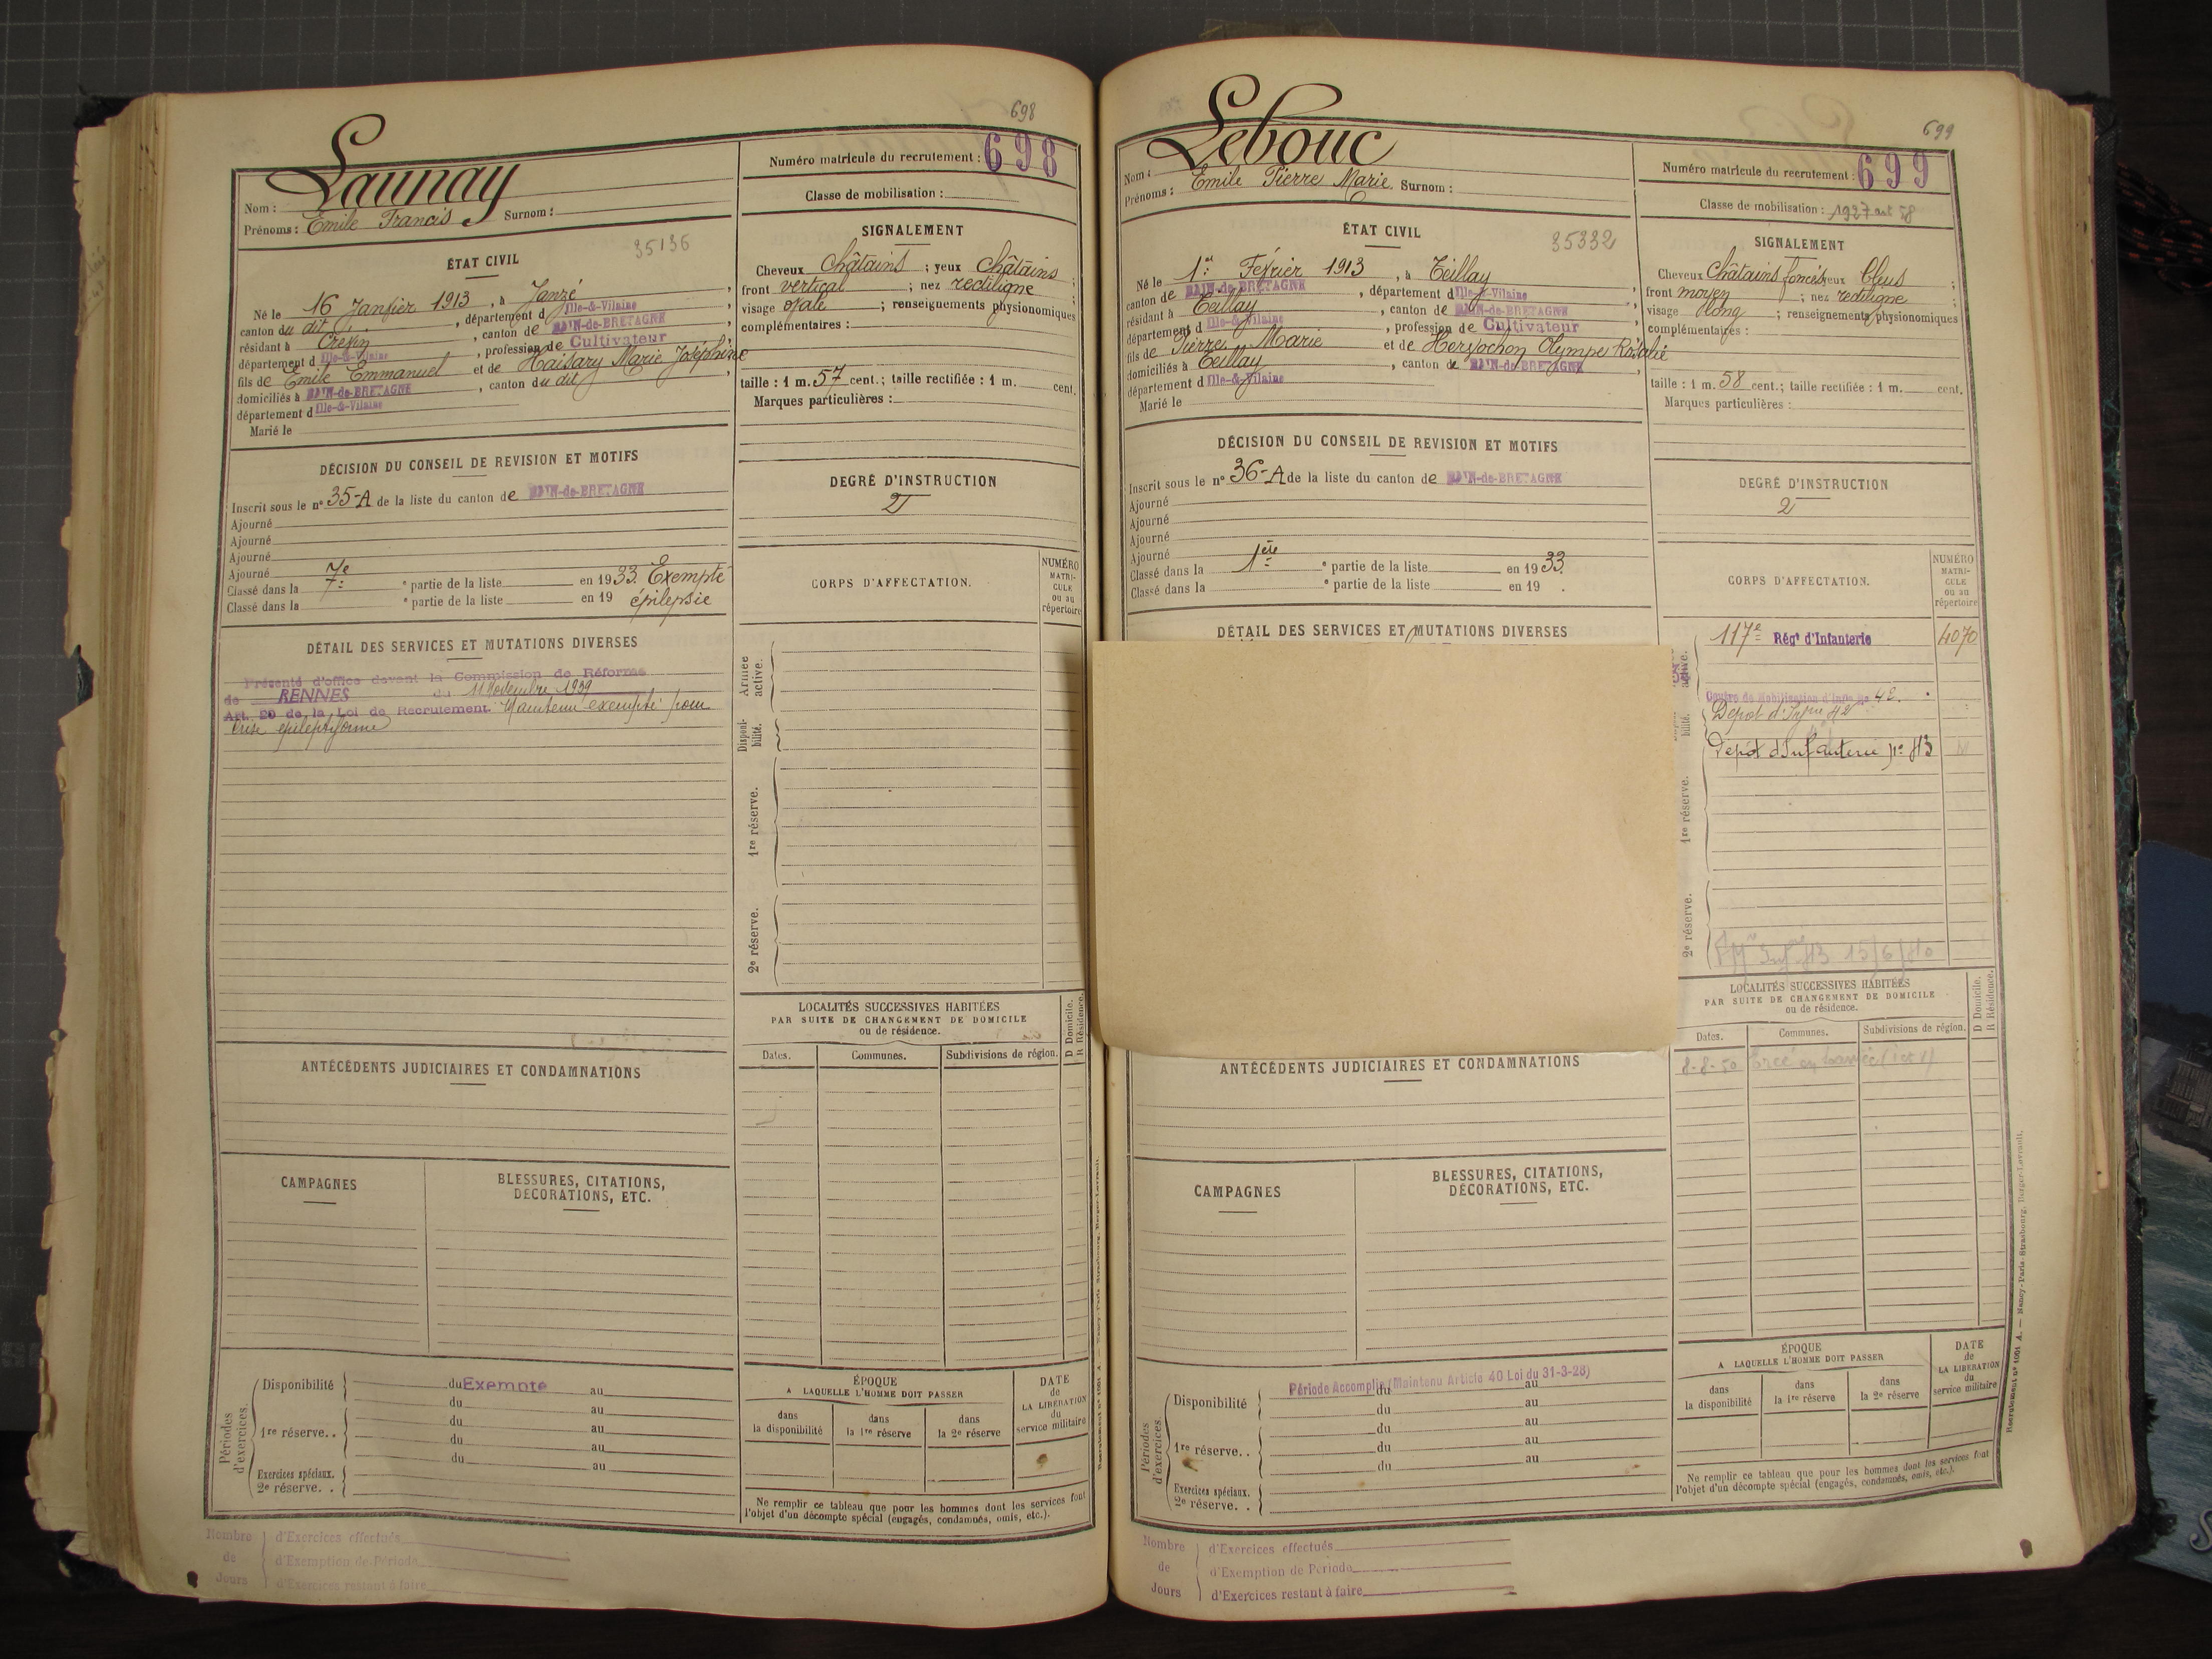 698
Launay
Nom :
Prénoms : Emile Francis Surnom :
Numéro matricule du recrutement : 698
Classe de mobilisation :
ÉTAT CIVIL
35136
Né le 16 Janvier 1913, à Janzé,
canton du dit, département d Ille-&-Vilaine
résidant à Crevin, canton de BAIN-de-BRETAGNE,
département d Ille-&-Vilaine, profession de Cultivateur
fils de Emile Emmanuel et de Haisary Marie Joséphine
domiciliés à BAIN-de-BRETAGNE, canton du dit,
département d Ille-&-Vilaine
Marié le
SIGNALEMENT
Cheveux Châtains ; yeux Châtains ;
front vertical ; nez rectiligne ;
visage ovale ; renseignements physionomiques
complémentaires :
taille : 1 m. 57 cent.; taille rectifiée : 1 m. cent.
Marques particulières :
DÉCISION DU CONSEIL DE REVISION ET MOTIFS
Inscrit sous le n° 35-A de la liste du canton de BAIN-de-BRETAGNE
Ajourné
Ajourné
Ajourné
Ajourné
Classé dans la 7e ° partie de la liste en 1933. Exempté
Classé dans la ° partie de la liste en 19 épilepsie
DEGRÉ D'INSTRUCTION
2
CORPS D'AFFECTATION.
NUMÉRO
MATRI-
CULE
ou au
répertoire
DÉTAIL DES SERVICES ET MUTATIONS DIVERSES
Présenté d'office devant la Commission de Réforme
de RENNES du 11 Novembre 1939
Art. 20 de la Loi de Recrutement. Maintenu exempté pour
crise épileptiforme
Armée
active.
Disponi-
bilité.
1re réserve.
2e réserve.
LOCALITÉS SUCCESSIVES HABITÉES
PAR SUITE DE CHANGEMENT DE DOMICILE
ou de résidence.
D Domicile.
R Résidence.
Dates.
Communes.
Subdivisions de région.
ANTÉCÉDENTS JUDICIAIRES ET CONDAMNATIONS
CAMPAGNES
BLESSURES, CITATIONS,
DÉCORATIONS, ETC.
Périodes
d'exercices.
Disponibilité
du Exempté au
du au
1re réserve. .
du au
du au
du au
Exercices spéciaux.
2e réserve. .
ÉPOQUE
A LAQUELLE L'HOMME DOIT PASSER
dans
la disponibilité
dans
la 1re réserve
dans
la 2e réserve
DATE
de
LA LIBÉRATION
du
service militaire
Ne remplir ce tableau que pour les hommes dont les services font
l'objet d'un décompte spécial (engagés, condamnés, omis, etc.).
Nombre
de
Jours
d'Exercices effectués
d'Exemption de Période
d'Exercices restant à faire
699
Lebouc
Nom :
Prénoms : Emile Pierre Marie Surnom :
Numéro matricule du recrutement : 699
Classe de mobilisation : 1927 art 58
ÉTAT CIVIL
35332
Né le 1er Février 1913, à Teillay,
canton de BAIN-de-BRETAGNE, département d Ille-&-Vilaine
résidant à Teillay, canton de BAIN-de-BRETAGNE,
département d Ille-&-Vilaine, profession de Cultivateur
fils de Pierre Marie et de Hervochon Olympe Rosalie
domiciliés à Teillay, canton de BAIN-de-BRETAGNE,
département d Ille-&-Vilaine
Marié le
SIGNALEMENT
Cheveux Châtains foncés yeux bleus ;
front moyen ; nez rectiligne ;
visage long ; renseignements physionomiques
complémentaires :
taille : 1 m. 58 cent.; taille rectifiée : 1 m. cent.
Marques particulières :
DÉCISION DU CONSEIL DE REVISION ET MOTIFS
Inscrit sous le n° 36-A de la liste du canton de BAIN-de-BRETAGNE
Ajourné
Ajourné
Ajourné
Ajourné
Classé dans la 1ère ° partie de la liste en 1933.
Classé dans la ° partie de la liste en 19 .
DEGRÉ D'INSTRUCTION
2
CORPS D'AFFECTATION.
NUMÉRO
MATRI-
CULE
ou au
répertoire
DÉTAIL DES SERVICES ET MUTATIONS DIVERSES
active.
117e Régt d'Infanterie 4070
Centre de Mobilisation d'Infie No 42.
Dépôt d'Infrie 42
Dépôt d'Infanterie n° 43
1re réserve.
2e réserve.
Inf. 43 15/6/40
LOCALITÉS SUCCESSIVES HABITÉES
PAR SUITE DE CHANGEMENT DE DOMICILE
ou de résidence.
D Domicile.
R Résidence.
Dates.
Communes.
Subdivisions de région.
8-8-50 Ercé en Lamée (I et V)
ANTÉCÉDENTS JUDICIAIRES ET CONDAMNATIONS
CAMPAGNES
BLESSURES, CITATIONS,
DÉCORATIONS, ETC.
Période Accomplie (Maintenu Article 40 Loi du 31-3-28)
Périodes
d'exercices.
Disponibilité
du au
du au
1re réserve. .
du au
du au
du au
Exercices spéciaux.
2e réserve. .
ÉPOQUE
A LAQUELLE L'HOMME DOIT PASSER
dans
la disponibilité
dans
la 1re réserve
dans
la 2e réserve
DATE
de
LA LIBÉRATION
du
service militaire
Ne remplir ce tableau que pour les hommes dont les services font
l'objet d'un décompte spécial (engagés, condamnés, omis, etc.).
Recrutement n° 1001 A. — Nancy-Paris-Strasbourg, Berger-Levrault.
Nombre
de
Jours
d'Exercices effectués
d'Exemption de Période
d'Exercices restant à faire